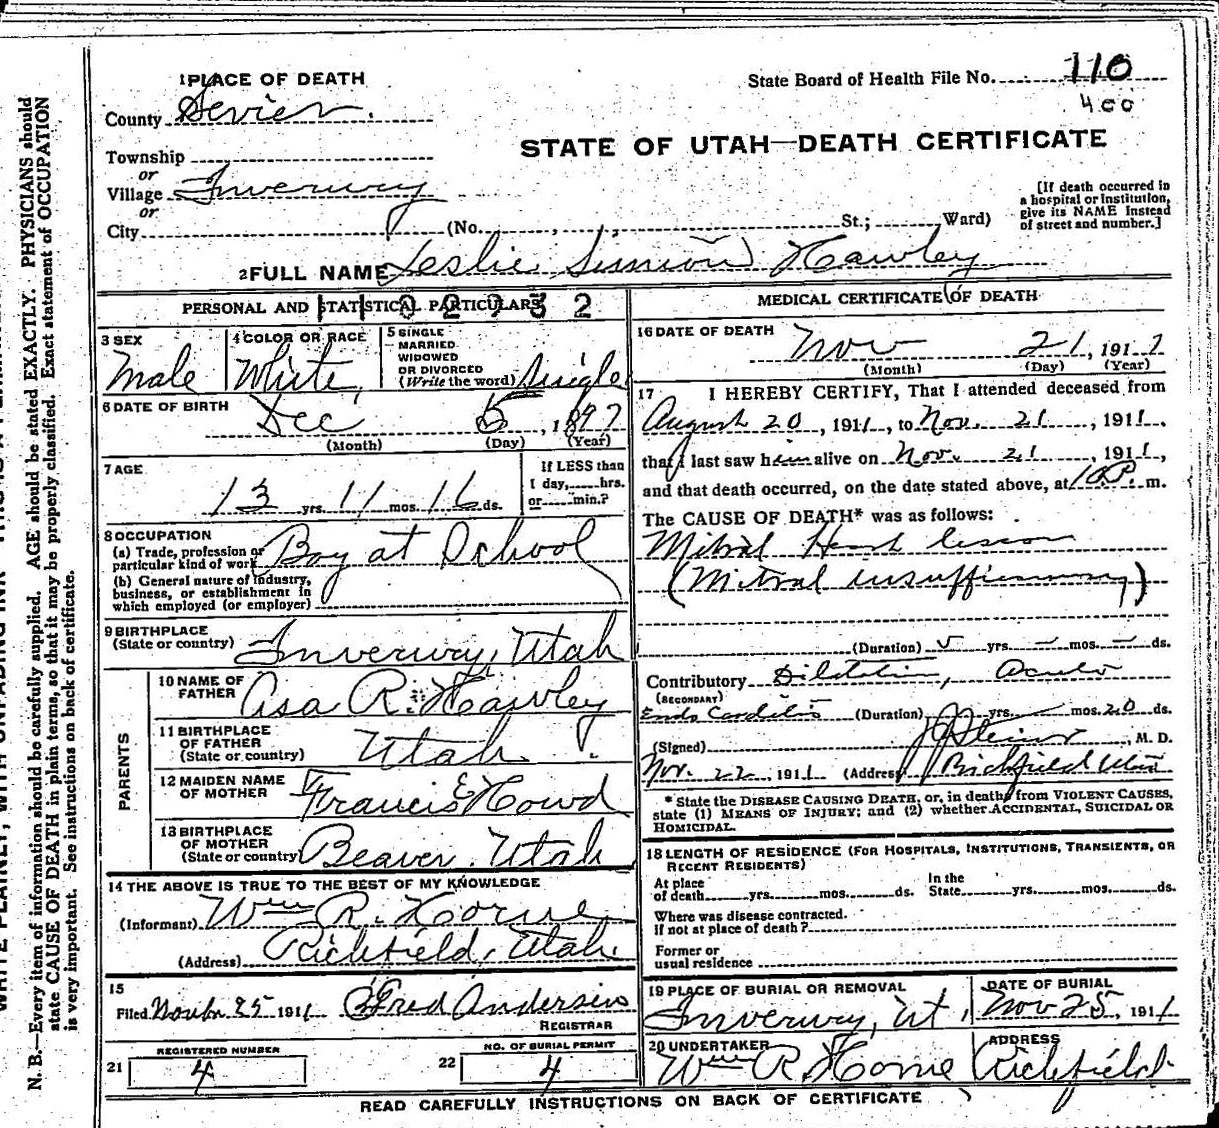 1 PLACE OF DEATH
State Board of Health File No. 110
400
County Sevier.
STATE OF UTAH—DEATH CERTIFICATE
Township
or
Village Inverury
or
City (No. , St.; Ward)
[If death occurred in
a hospital or institution,
give its NAME instead
of street and number.]
2 FULL NAME Leslie Simion Hawley
PERSONAL AND STATISTICAL PARTICULARS
3 SEX
Male
4 COLOR OR RACE
White
5 SINGLE
MARRIED
WIDOWED
OR DIVORCED
(Write the word) Single
6 DATE OF BIRTH
Dec 5, 1897
(Month) (Day) (Year)
7 AGE
13 yrs. 11 mos. 16 ds.
If LESS than
1 day, hrs.
or min.?
8 OCCUPATION
(a) Trade, profession or
particular kind of work Boy at School
(b) General nature of industry,
business, or establishment in
which employed (or employer)
9 BIRTHPLACE
(State or country) Inverury, Utah
PARENTS
10 NAME OF
FATHER Asa R. Hawley
11 BIRTHPLACE
OF FATHER
(State or country) Utah
12 MAIDEN NAME
OF MOTHER Francis E Howd
13 BIRTHPLACE
OF MOTHER
(State or country) Beaver. Utah
14 THE ABOVE IS TRUE TO THE BEST OF MY KNOWLEDGE
(Informant) Wm R. Horne
(Address) Richfield, Utah
15
Filed 25 1911 Fred Andersen
REGISTRAR
REGISTERED NUMBER
21 4
NO. OF BURIAL PERMIT
22 4
MEDICAL CERTIFICATE OF DEATH
16 DATE OF DEATH
Nov 21, 1911
(Month) (Day) (Year)
17 I HEREBY CERTIFY, That I attended deceased from
August 20, 1911, to Nov. 21, 1911,
that I last saw him alive on Nov. 21, 1911,
and that death occurred, on the date stated above, at 10 P. m.
The CAUSE OF DEATH* was as follows:
Mitral Heart lesion
(Mitral insufficiency)
(Duration) yrs. — mos. — ds.
Contributory Dilitation, Acute
(SECONDARY)
Endo Carditis (Duration) yrs. mos. 20 ds.
(Signed) Steiner, M. D.
Nov. 22, 1911 (Address) Richfield Utah
* State the DISEASE CAUSING DEATH, or, in deaths from VIOLENT CAUSES,
state (1) MEANS OF INJURY; and (2) whether ACCIDENTAL, SUICIDAL OR
HOMICIDAL.
18 LENGTH OF RESIDENCE (FOR HOSPITALS, INSTITUTIONS, TRANSIENTS, OR
RECENT RESIDENTS)
At place
of death yrs. mos. ds.
In the
State yrs. mos. ds.
Where was disease contracted.
If not at place of death?
Former or
usual residence
19 PLACE OF BURIAL OR REMOVAL
Inverury, Ut,
DATE OF BURIAL
Nov 25, 1911
20 UNDERTAKER
Wm R. Horne
ADDRESS
Richfield
READ CAREFULLY INSTRUCTIONS ON BACK OF CERTIFICATE
N. B.—Every item of information should be carefully supplied. AGE should be stated EXACTLY. PHYSICIANS should
state CAUSE OF DEATH in plain terms, so that it may be properly classified. Exact statement of OCCUPATION
is very important. See instructions on back of certificate.